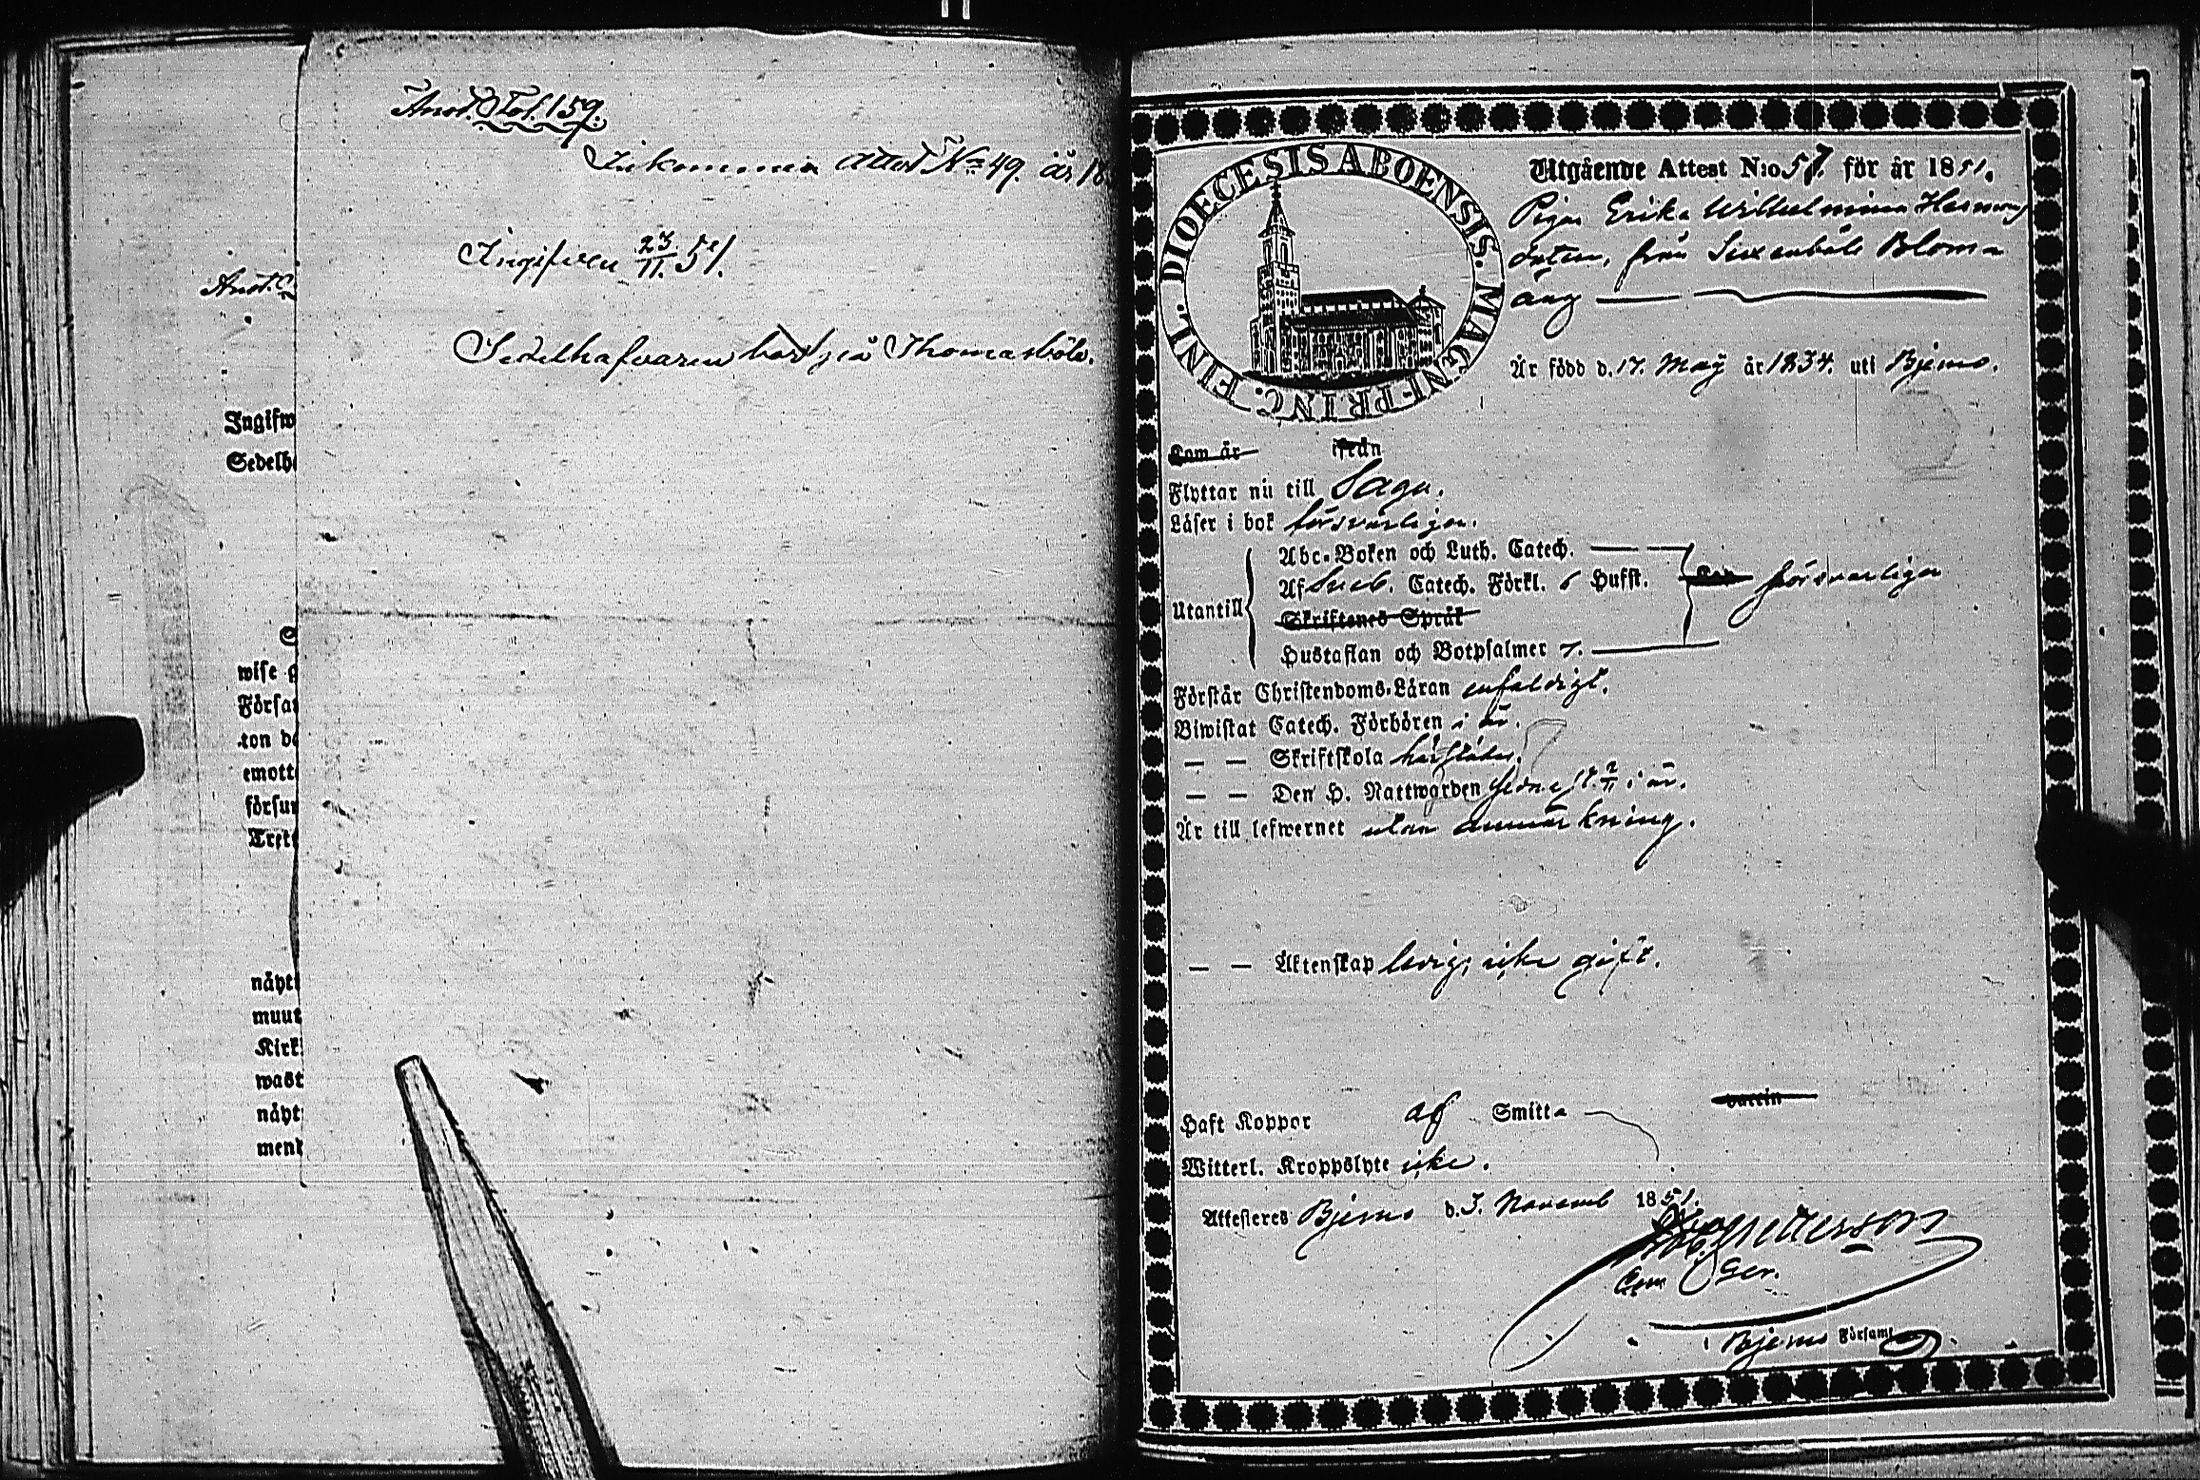 Anot. Fol. 159.
Inkommen attest No 49. år 18
Ingifven 23/11. 51.
Anot.
Sedelhafvaren bor på Thomasböle.
Ingifw
Sedelh
S
wise
Förfa
ton d
emott
försu
Tret
näyt
muut
Kirk
wast
näyt
ment
DIOECESIS ABOENSIS. MAGNI PRINC. FINL.
Utgående Attest N:o 57. för år 1851.
Pigan Erika Wilhelmina Henrics
dotter, från Sixenböle Bloms
äng
Är född d. 17. Maÿ år 1834. uti Bjerno.
Kom år ifrån
Flyttar nu till Sagu.
Läser i bok försvarligen.
Abc-Boken och Luth. Catech.
Af Sveb. Catech. Förkl. 6 Hufst. försvarligen
Utantill
Skriftenes Språk
Hustaflan och Botpsalmer 7.
Förstår Christendoms-Läran enfaldigt.
Biwistat Catech. Förhören i år.
— — Skriftskola härstädes.
— — Den H. Nattwarden sednast 2/11 i år.
Är till lefwernet utan anmärkning.
— — Äktenskap ledig, icke gift.
Haft Koppor af Smitta vaccin
Witterl. Kroppslyte icke.
Attesteres Bjerno d. 3. Novemb 1851.
Petterson
i Bjerno Församl.